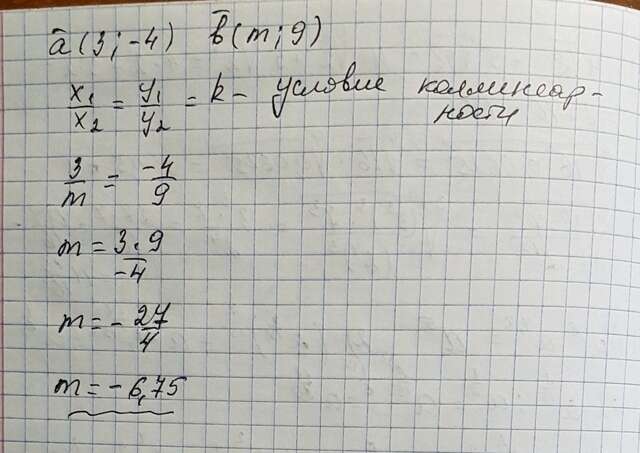 a̅ (3; -4) b̅ (m; 9)
x₁/x₂ = y₁/y₂ = k - условие коллинеар-
ности
3/m = -4/9
m = 3·9/-4
m = - 27/4
m = - 6,75